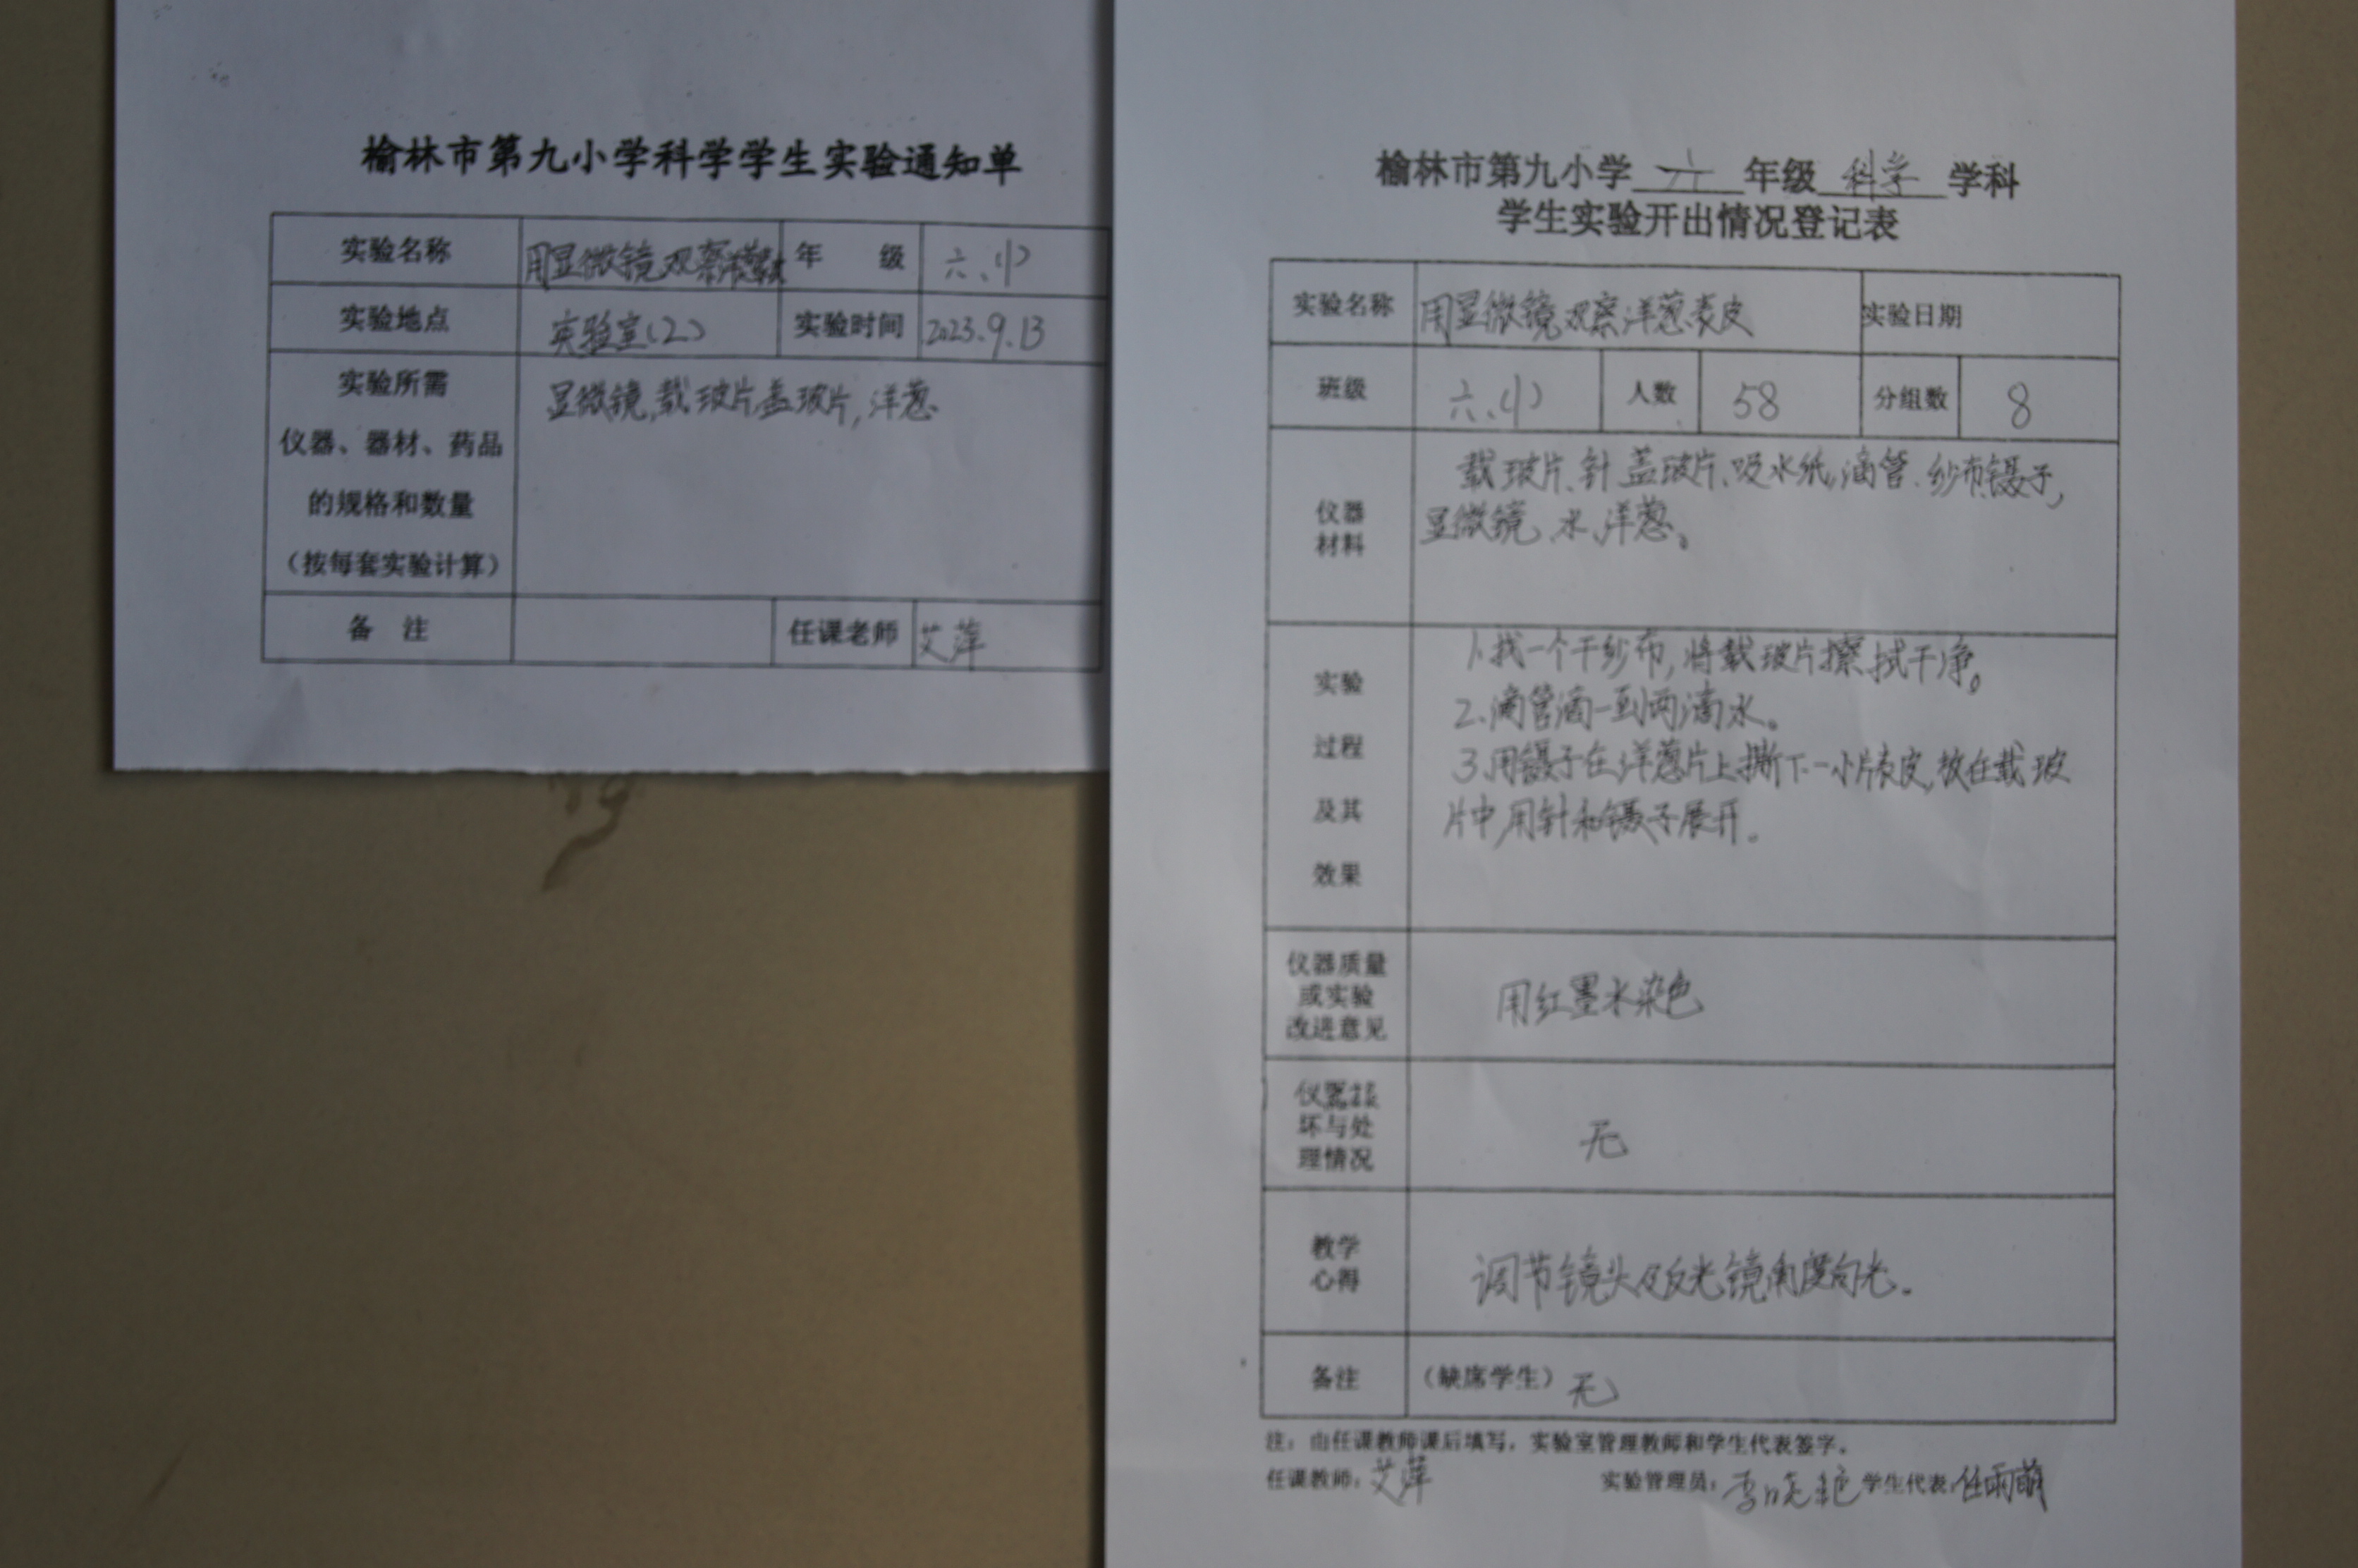 榆林市第九小学科学学生实验通知单
实验名称 用显微镜观察洋葱表皮 年 级 六、(1)
实验地点 实验室(2) 实验时间 2023.9.13
实验所需
仪器、器材、药品
的规格和数量
(按每套实验计算)
显微镜,载玻片,盖玻片,洋葱
备 注 任课老师 艾萍
榆林市第九小学 六 年级 科学 学科
学生实验开出情况登记表
实验名称 用显微镜观察洋葱表皮 实验日期
班级 六、(1) 人数 58 分组数 8
仪器
材料
载玻片、针、盖玻片、吸水纸、滴管、纱布、镊子,
显微镜、水、洋葱。
实验
过程
及其
效果
1.找一个干纱布,将载玻片擦拭干净。
2.滴管滴一到两滴水。
3.用镊子在洋葱片上撕下一小片表皮,放在载玻
片中,用针和镊子展开。
仪器质量
或实验
改进意见
用红墨水染色
仪器损
坏与处
理情况
无
教学
心得
调节镜头及反光镜角度向光。
备注 (缺席学生) 无
注:由任课教师课后填写,实验室管理教师和学生代表签字。
任课教师:艾萍 实验管理员:李晓艳 学生代表:任雨萌